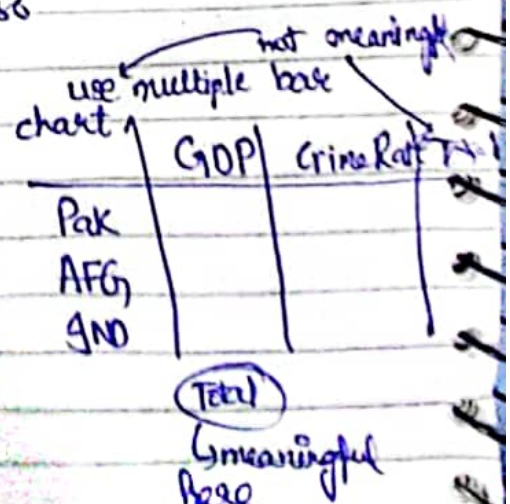 not meaningful
use multiple bar
chart
GDP Crime Rate Total
Pak
AFG
IND
Total
meaningful